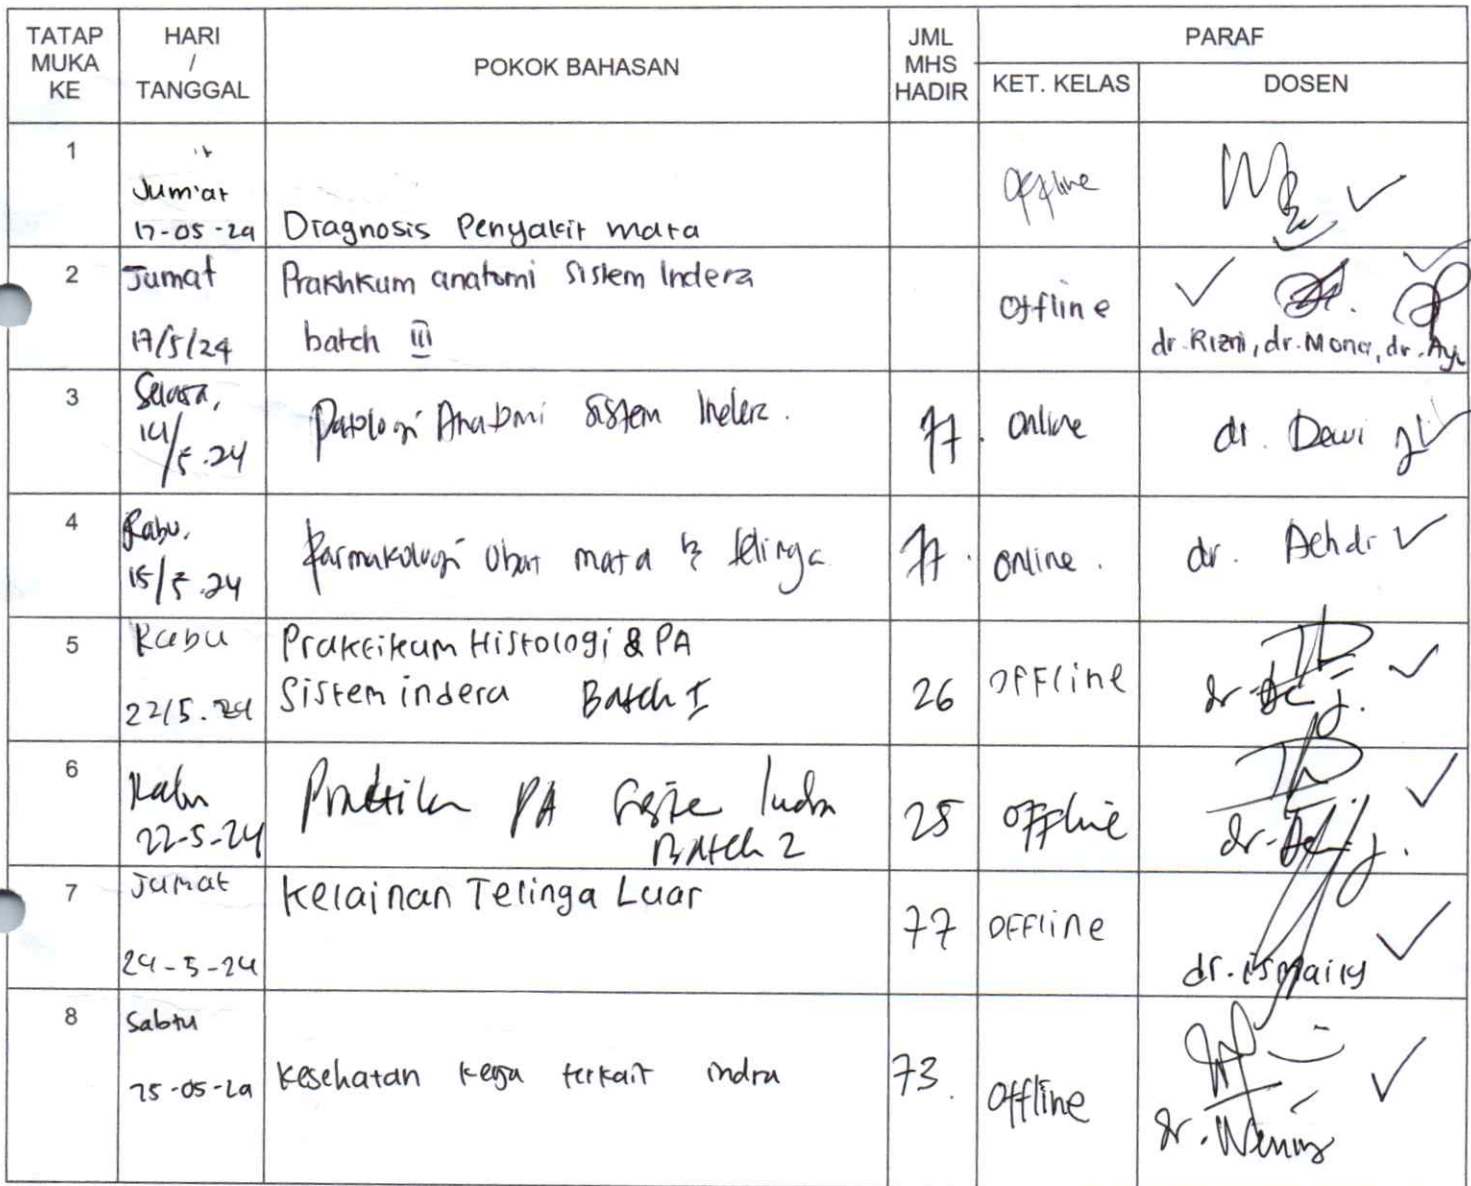 TATAP MUKA KE
HARI / TANGGAL
POKOK BAHASAN
JML MHS HADIR
PARAF
KET. KELAS
DOSEN
1
Jum'at
17-05-24
Diagnosis Penyakit mata
offline
2
Jumat
17/5/24
Praktikum anatomi Sistem Indera
batch III
Offline
dr. Rizni, dr. Mona, dr. Ayu
3
Selasa,
14/5.24
Patologi Anatomi Sistem Indera.
77.
online
dr. Dewi
4
Rabu,
15/5.24
Farmakologi Obat mata & telinga
77.
online.
dr. Achdi
5
Rabu
22/5.24
Praktikum Histologi & PA
Sistem indera Batch I
26
OFFline
dr.
6
Rabu
22-5-24
PA
Batch 2
25
offline
dr.
7
Jumat
24-5-24
Kelainan Telinga Luar
77
OFFline
dr. Ismaily
8
Sabtu
25-05-24
Kesehatan kerja terkait indra
73.
Offline
dr.